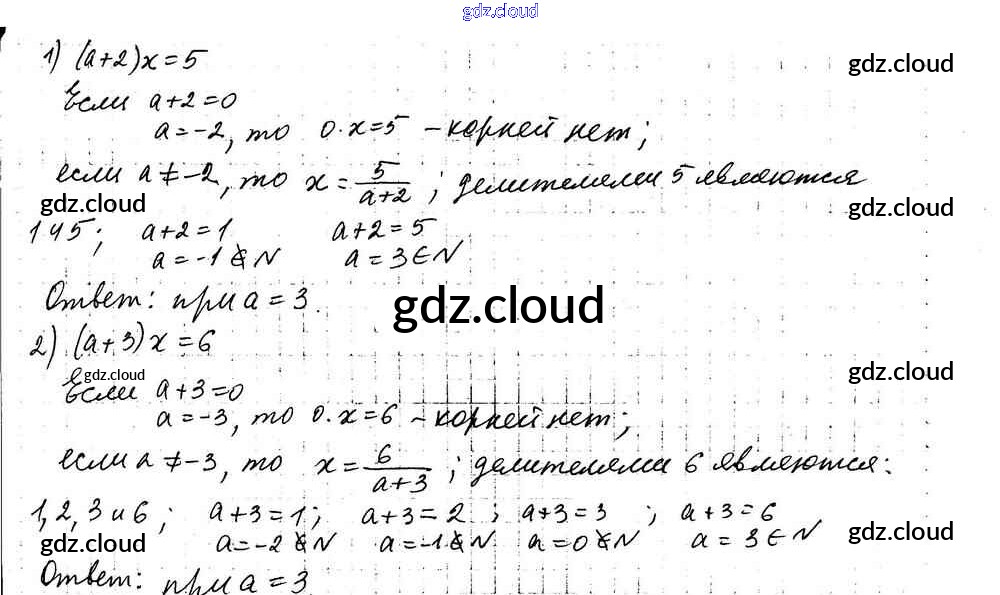 gdz.cloud
1) (a+2)x=5
gdz.cloud
Если a+2=0
a=-2, то 0·x=5 – корней нет;
если a≠-2, то x=5/(a+2); делителями 5 являются
gdz.cloud gdz.cloud
1 и 5; a+2=1 a+2=5
a=-1∉N a=3∈N
Ответ: при a=3.
gdz.cloud
2) (a+3)x=6
gdz.cloud gdz.cloud
Если a+3=0
a=-3, то 0·x=6 – корней нет;
если a≠-3, то x=6/(a+3); делителями 6 являются:
1, 2, 3 и 6; a+3=1; a+3=2; a+3=3; a+3=6
gdz.cloud a=-2∉N a=-1∉N a=0∉N a=3∈N gdz.cloud
Ответ: при a=3